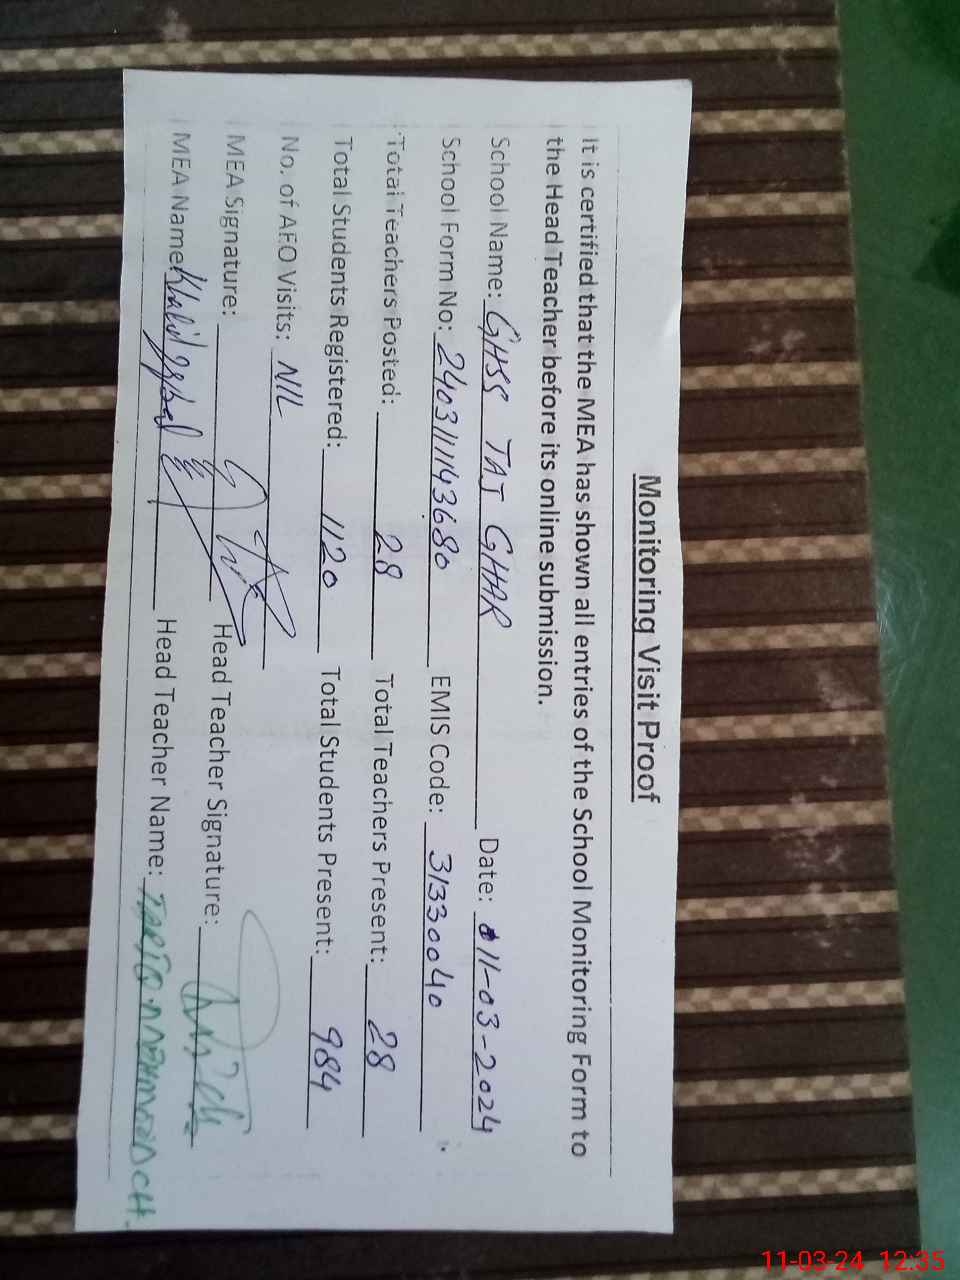 Monitoring Visit Proof
It is certified that the MEA has shown all entries of the School Monitoring Form to
the Head Teacher before its online submission.
School Name: GHSS TAJ GHAR Date: 11-03-2024
School Form No: 2403111143680 EMIS Code: 31330040
Total Teachers Posted: 28 Total Teachers Present: 28
Total Students Registered: 1120 Total Students Present: 984
No. of AEO Visits: NIL
MEA Signature: Head Teacher Signature:
MEA Name: Khalid Head Teacher Name: TARIQ CH.
11-03-24 12:35